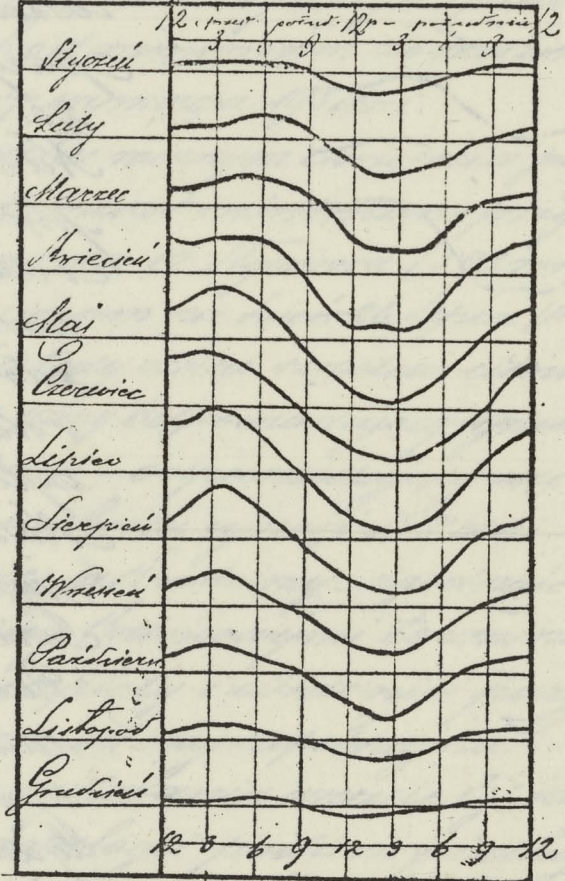 12. przed połud. 12 p- południem 12
3 6 9 3 6 9
Styczeń
Luty
Marzec
Kwiecień
Mai
Czerwiec
Lipiec
Sierpień
Wrzesień
Październ
Listopad
Grudzień
12 3 6 9 12 3 6 9 12